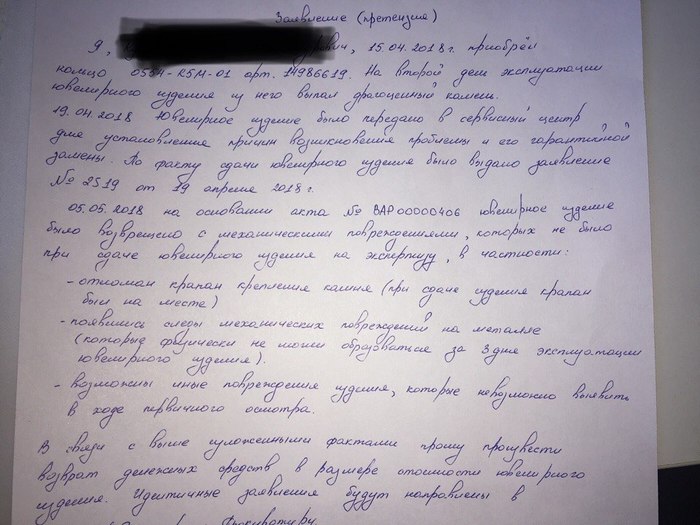 Заявление (претензия)
Я, рович, 15.04.2018г. приобрёл
кольцо 0584-RSM-01 арт. 14986619. На второй день эксплуатации
ювелирного изделия из него выпал драгоценный камень.
19.04.2018 Ювелирное изделие было передано в сервисный центр
для установления причин возникновения проблемы и его гарантийной
замены. По факту сдачи ювелирного изделия было выдано заявление
№ 2519 от 19 апреля 2018г.
05.05.2018 на основании акта № ВАР00000406 ювелирное изделие
было возвращено с механическими повреждениями, которых не было
при сдаче ювелирного изделия на экспертизу, в частности:
- отломан крапан крепления камня (при сдаче изделия крапан
был на месте)
- появились следы механических повреждений на металле
(которые физически не могли образоваться за 3 дня эксплуатации
ювелирного изделия).
- возможны иные повреждения изделия, которые невозможно выявить
в ходе первичного осмотра.
В связи с выше изложенными фактами прошу произвести
возврат денежных средств в размере стоимости ювелирного
изделия. Идентичные заявления будут направлены в
Прокуратуру.